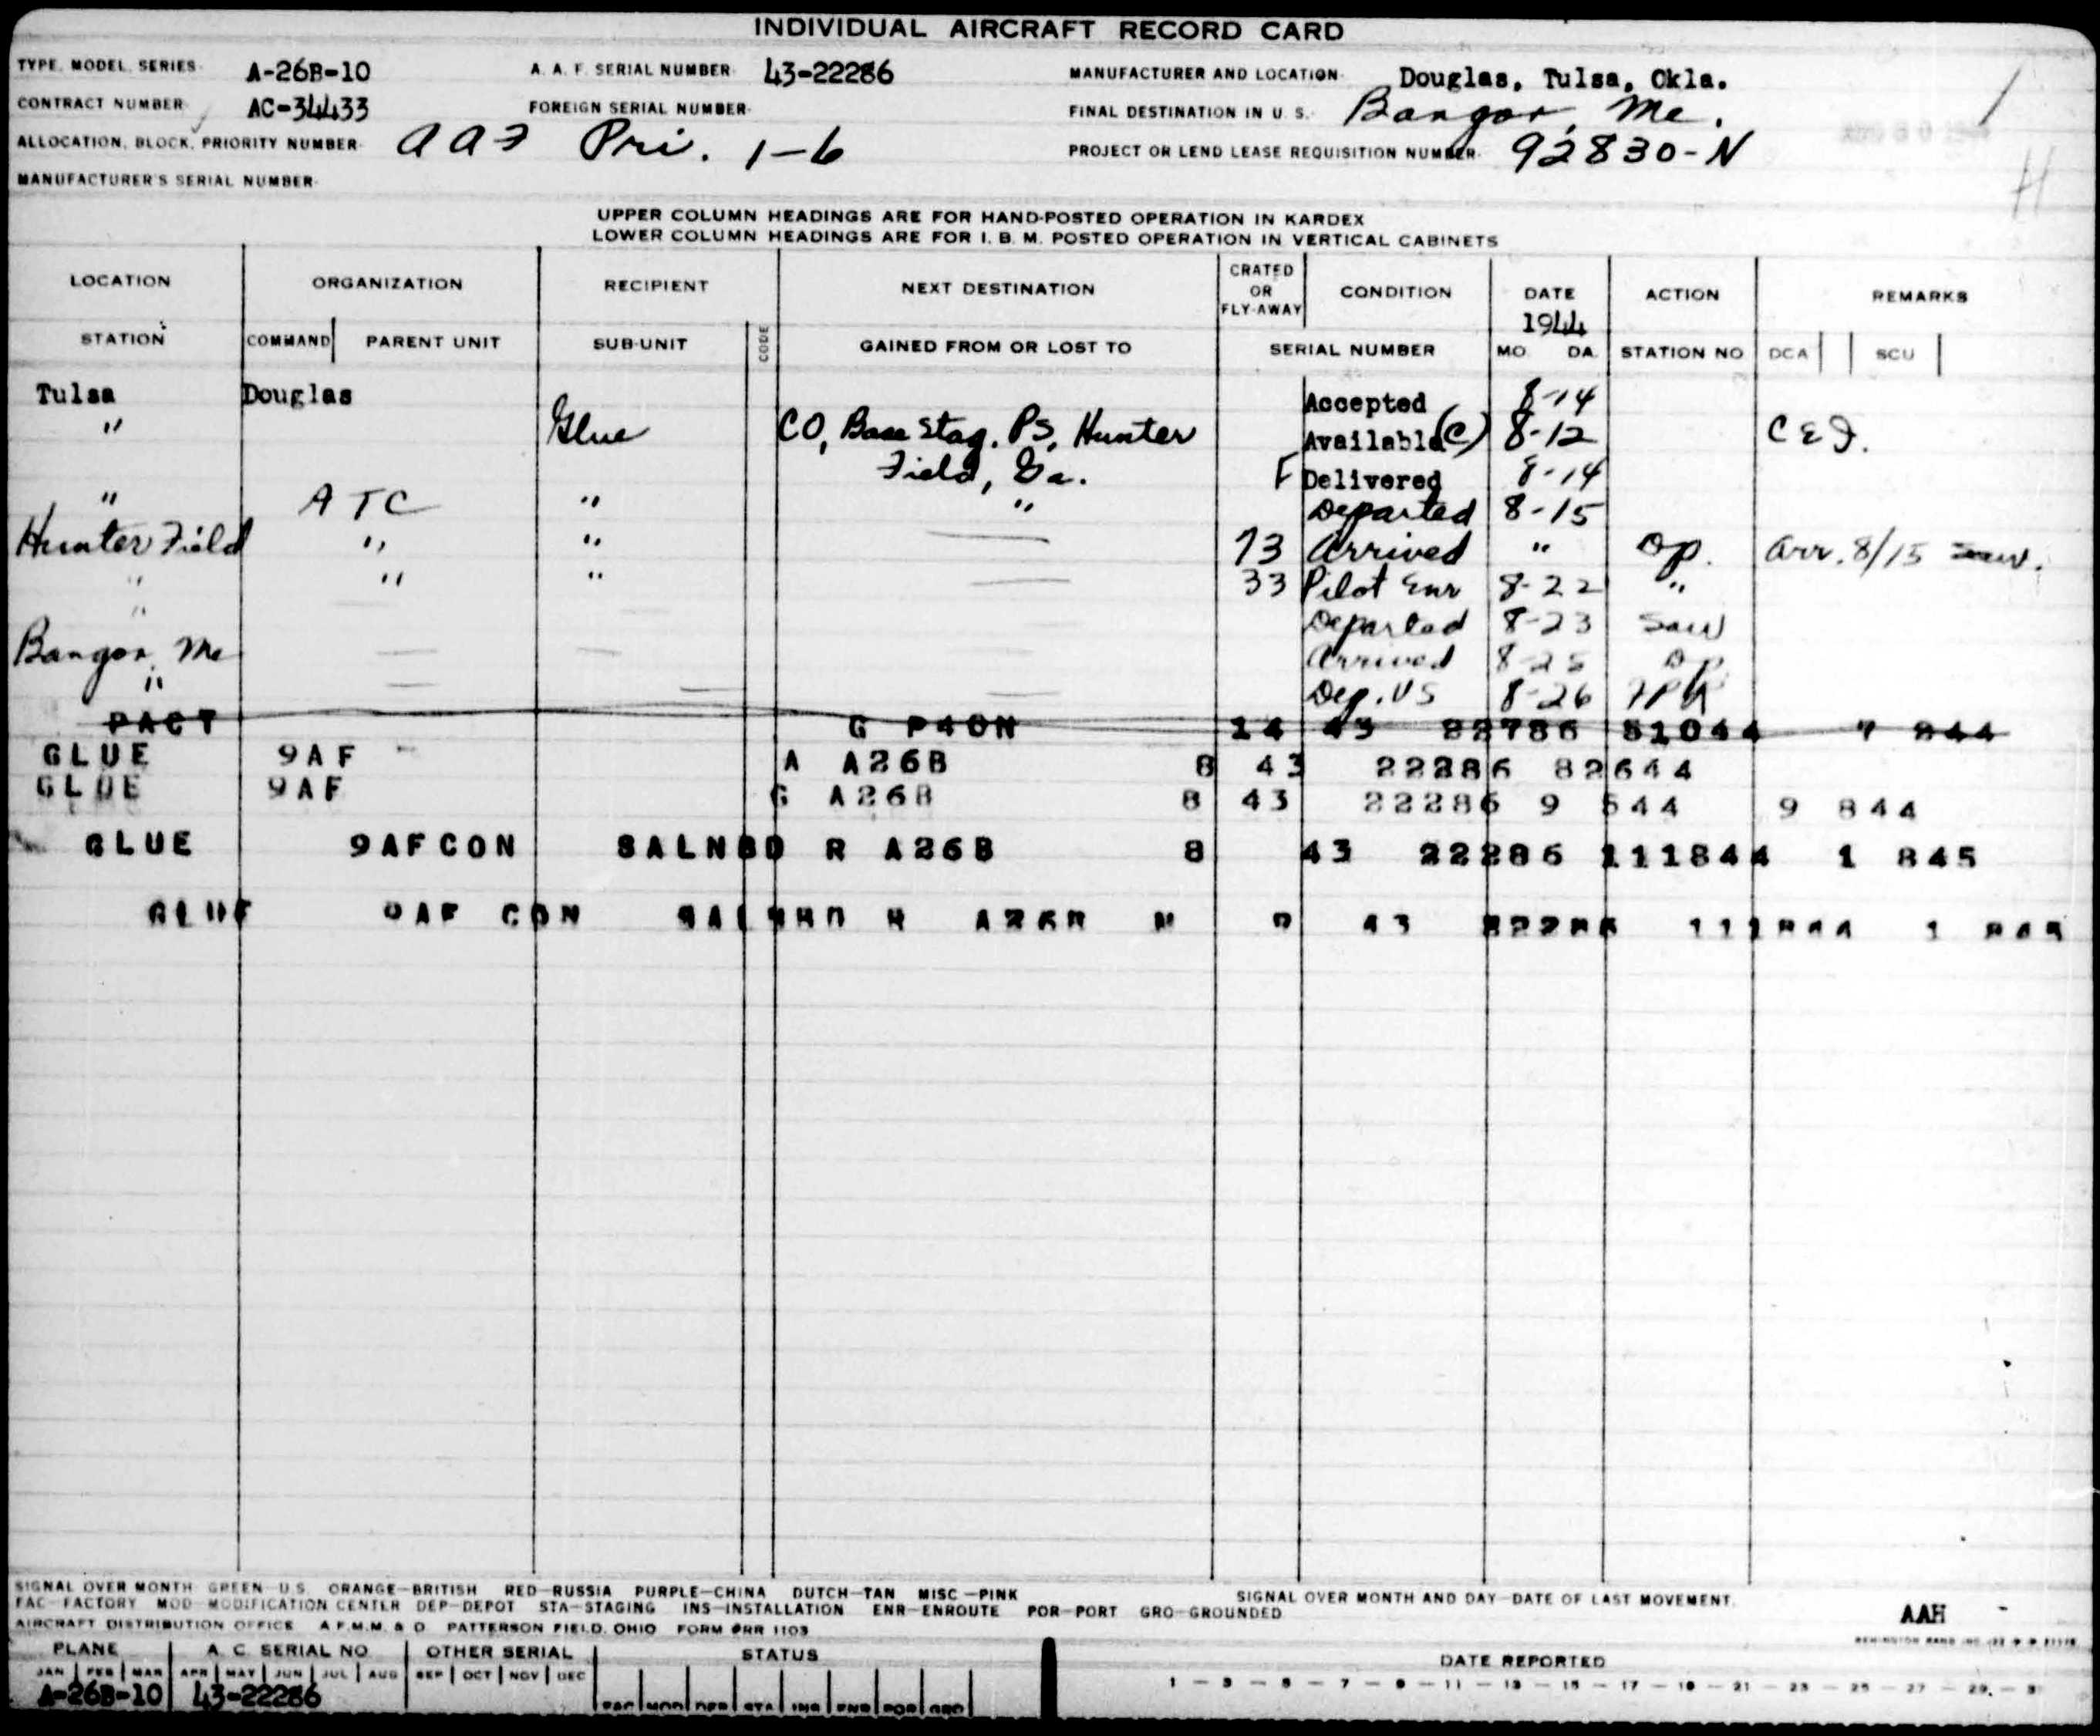 INDIVIDUAL AIRCRAFT RECORD CARD
TYPE, MODEL, SERIES A-26B-10 A. A. F. SERIAL NUMBER 43-22286 MANUFACTURER AND LOCATION Douglas, Tulsa, Okla.
CONTRACT NUMBER AC-34433 FOREIGN SERIAL NUMBER FINAL DESTINATION IN U. S. Bangor, Me.
ALLOCATION, BLOCK, PRIORITY NUMBER AAF Pri. 1-6 PROJECT OR LEND LEASE REQUISITION NUMBER 92830-N
MANUFACTURER'S SERIAL NUMBER
UPPER COLUMN HEADINGS ARE FOR HAND-POSTED OPERATION IN KARDEX
LOWER COLUMN HEADINGS ARE FOR I. B. M. POSTED OPERATION IN VERTICAL CABINETS
LOCATION ORGANIZATION RECIPIENT NEXT DESTINATION CRATED OR FLY-AWAY CONDITION DATE ACTION REMARKS
1944
STATION COMMAND PARENT UNIT SUB-UNIT CODE GAINED FROM OR LOST TO SERIAL NUMBER MO. DA. STATION NO DCA SCU
Tulsa Douglas Accepted 8-14
" Glue CO, Base Stag. PS, Hunter Available (C) 8-12 C & I.
Field, Ga. F Delivered 8-14
" ATC " " Departed 8-15
Hunter Field " " 73 Arrived " Op. Arr. 8/15 Sav.
" " " 33 Pilot Enr 8-22 "
" Departed 8-23 Sav
Bangor, Me Arrived 8-25 Op
" Dep. US 8-26
PACT G P40N 14 43 22786 51044 7 244
GLUE 9AF A A26B 8 43 22286 82644
GLUE 9AF G A26B 8 43 22286 9 544 9 844
GLUE 9AFCON SALNBD R A26B 8 43 22286 111844 1 845
GLUE 9AF CON SALNBD R A26B 43 22286 111844 1 845
SIGNAL OVER MONTH GREEN—U.S. ORANGE—BRITISH RED—RUSSIA PURPLE—CHINA DUTCH—TAN MISC—PINK SIGNAL OVER MONTH AND DAY—DATE OF LAST MOVEMENT.
FAC—FACTORY MOD—MODIFICATION CENTER DEP—DEPOT STA—STAGING INS—INSTALLATION ENR—ENROUTE POR—PORT GRO—GROUNDED
AAH
AIRCRAFT DISTRIBUTION OFFICE A.F.M.M. & D. PATTERSON FIELD, OHIO FORM #RR 1103
PLANE A. C. SERIAL NO OTHER SERIAL STATUS DATE REPORTED
JAN FEB MAR APR MAY JUN JUL AUG SEP OCT NOV DEC 1 — 3 — 5 — 7 — 9 — 11 — 13 — 15 — 17 — 19 — 21 — 23 — 25 — 27 — 29 — 3
A-26B-10 43-22286
FAC MOD DEP STA INS ENR POR GRO